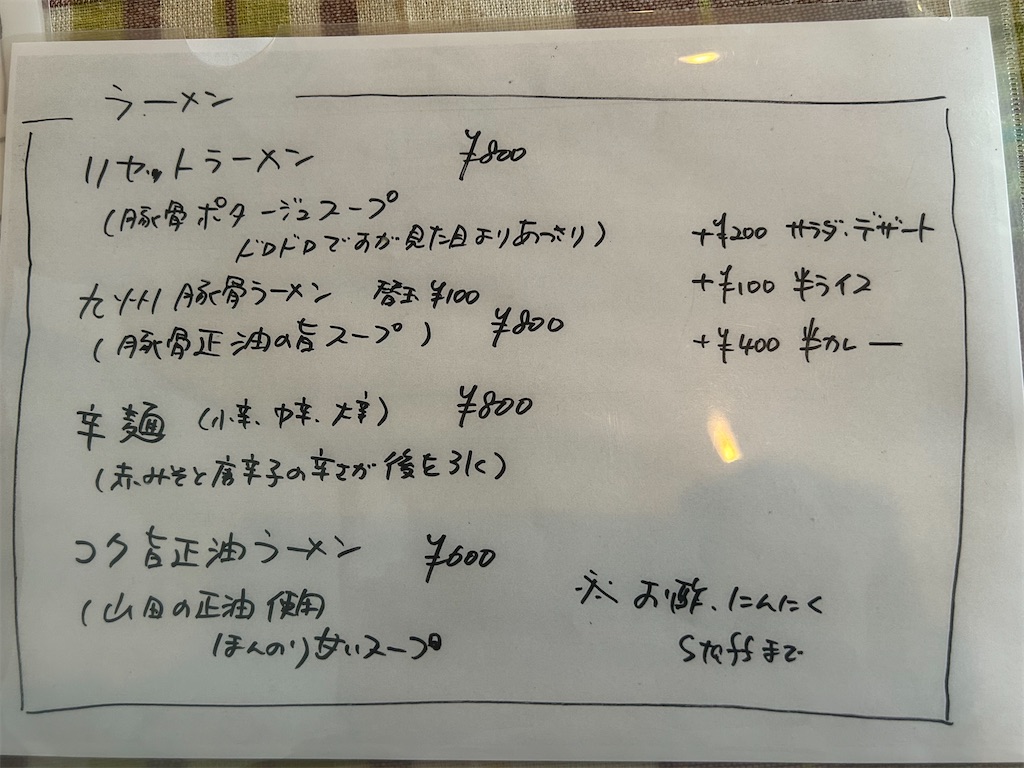 ラーメン
リセットラーメン ¥800
(豚骨ポタージュスープ
ドロドロですが見た目よりあっさり)
九州豚骨ラーメン 替玉¥100
(豚骨正油の旨スープ) ¥800
辛麺 (小辛、中辛、大辛) ¥800
(赤みそと唐辛子の辛さが後を引く)
コク旨正油ラーメン ¥600
(山田の正油使用
ほんのり甘いスープ
+¥200 サラダ・デザート
+¥100 半ライス
+¥400 半カレー
※ お酢、にんにく
Staffまで